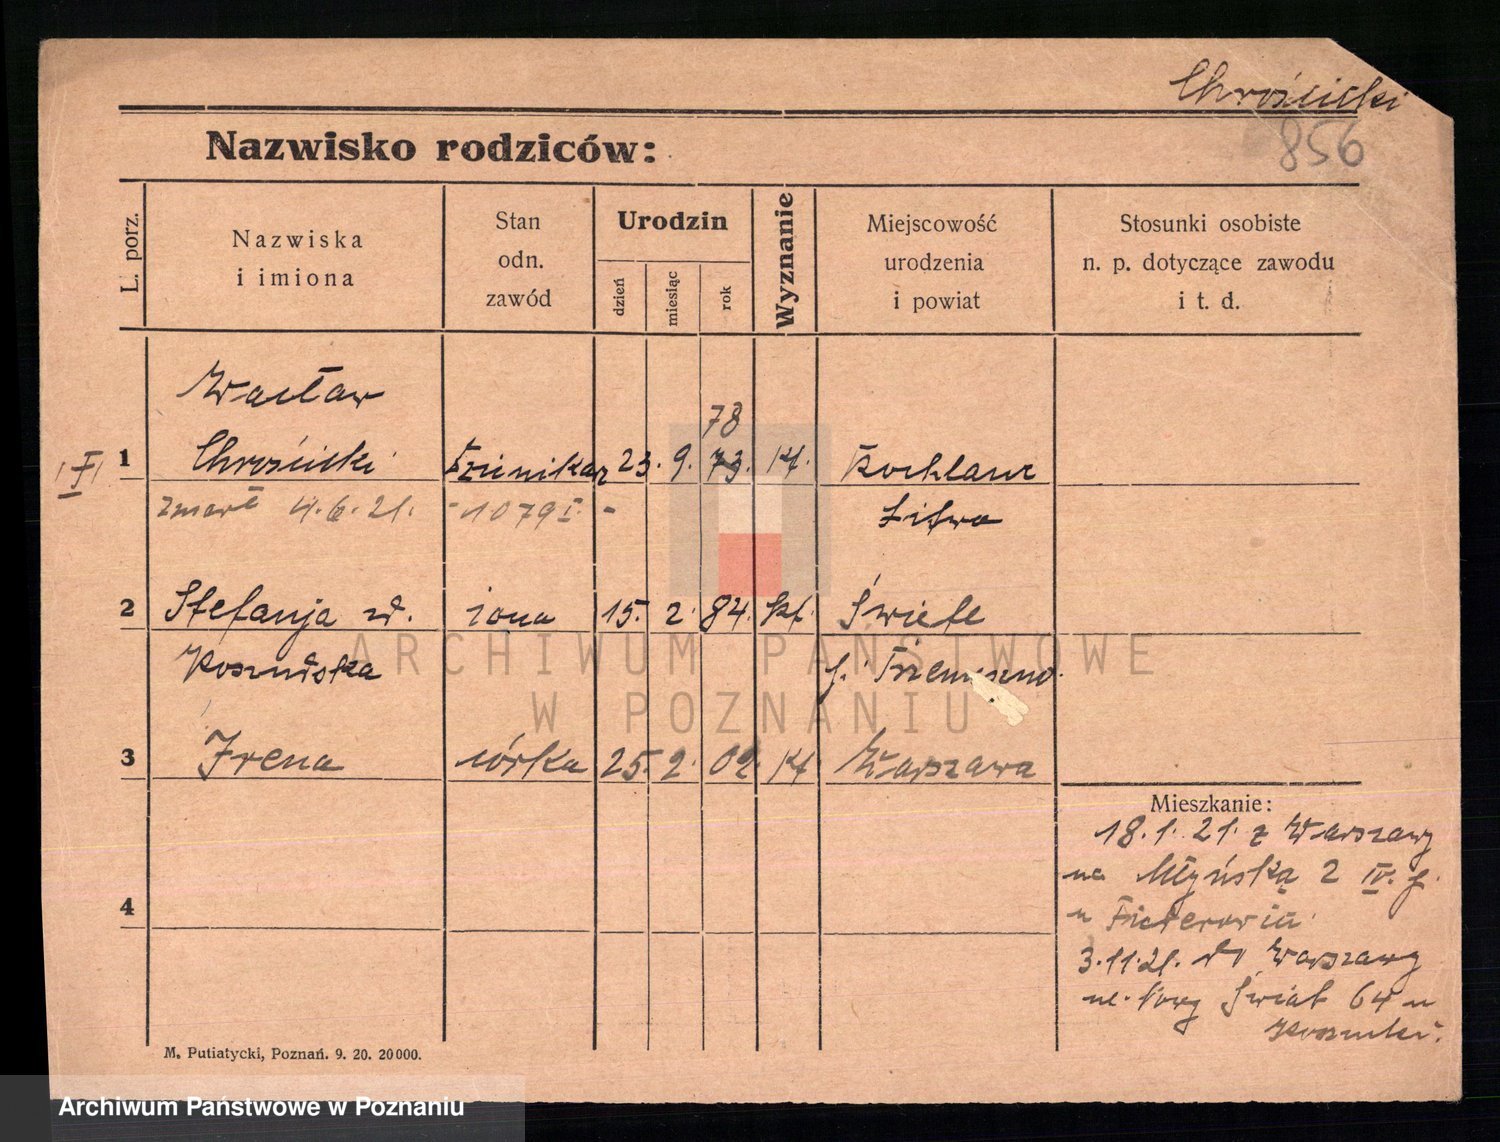 Chrościcki
856
Nazwisko rodziców:
L. porz.
Nazwiska
i imiona
Stan
odn.
zawód
Urodzin
dzień
miesiąc
rok
Wyznanie
Miejscowość
urodzenia
i powiat
Stosunki osobiste
n. p. dotyczące zawodu
i t. d.
Wacław
78
1 Chrościcki 23. 9. 73. kt.
zmarł 4.6.21. - 1079 I. -
Litwa
2 Stefanja żona 15. 2. 84. kt. Święte
3 Irena córka 25. 2. 02. kt Warszawa
Mieszkanie:
18.1.21. z Warszawy
na Młyńską 2 IV. p.
u
3.11.21. do Warszawy
Nowy Świat 64 u
4
M. Putiatycki, Poznań. 9. 20. 20000.
ARCHIWUM PAŃSTWOWE
W POZNANIU
Archiwum Państwowe w Poznaniu